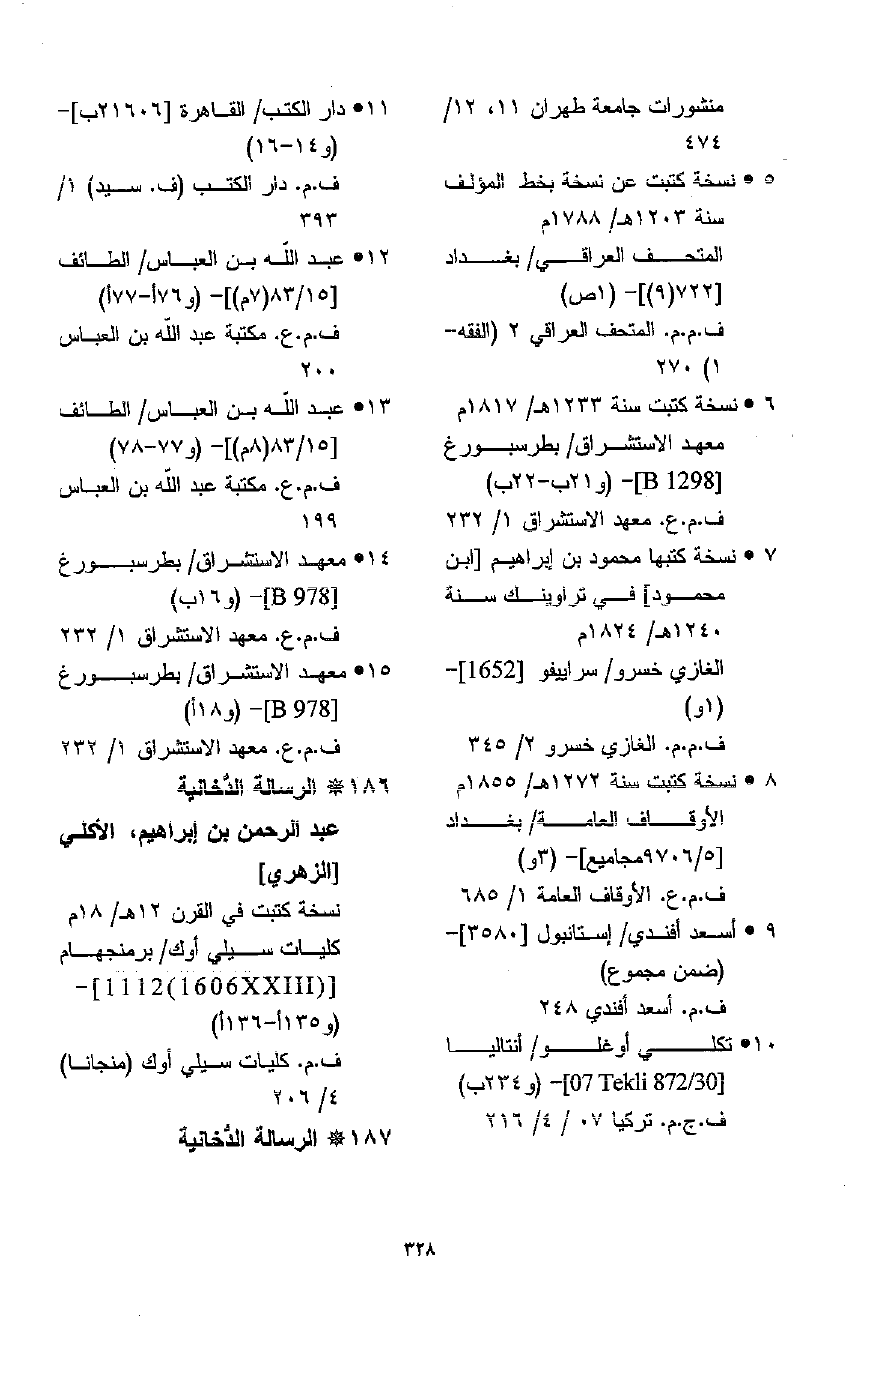 منشورات جامعة طهران ١١، ١٢/
٤٧٤
٥ • نسخة كتبت عن نسخة بخط المؤلف
سنة ١٢٠٣هـ/ ١٧٨٨م
المتحف العراقي/ بغداد
[٧٢٢(٩)]- (١ص)
ف.م.م. المتحف العراقي ٢ (الفقه-
١) ٢٧٠
٦ • نسخة كتبت سنة ١٢٣٣هـ/ ١٨١٧م
معهد الاستشراق/ بطرسبورغ
[B 1298]- (و٢١ب-٢٢ب)
ف.م.ع. معهد الاستشراق ١/ ٢٣٢
٧ • نسخة كتبها محمود بن إبراهيم [ابن
محمود] في تراوينك سنة
١٢٤٠هـ/ ١٨٢٤م
الغازي خسرو/ سراييفو [1652]-
(١و)
ف.م.م. الغازي خسرو ٢/ ٣٤٥
٨ • نسخة كتبت سنة ١٢٧٢هـ/ ١٨٥٥م
الأوقاف العامة/ بغداد
[٩٧٠٦/٥مجاميع]- (٣و)
ف.م.ع. الأوقاف العامة ١/ ٦٨٥
٩ • أسعد أفندي/ إستانبول [٣٥٨٠]-
(ضمن مجموع)
ف.م. أسعد أفندي ٢٤٨
١٠• تكلي أوغلو/ أنتاليا
[07 Tekli 872/30]- (و٢٣٤ب)
ف.ج.م. تركيا ٠٧ / ٤/ ٢١٦
١١• دار الكتب/ القاهرة [٢١٦٠٦ب]-
(و١٤-١٦)
ف.م. دار الكتب (ف. سيد) ١/
٣٩٣
١٢• عبد الله بن العباس/ الطائف
[٨٣/١٥(٧م)]- (و٧٦أ-٧٧أ)
ف.م.ع. مكتبة عبد الله بن العباس
٢٠٠
١٣• عبد الله بن العباس/ الطائف
[٨٣/١٥(٨م)]- (و٧٧-٧٨)
ف.م.ع. مكتبة عبد الله بن العباس
١٩٩
١٤• معهد الاستشراق/ بطرسبورغ
[B 978]- (و١٦ب)
ف.م.ع. معهد الاستشراق ١/ ٢٣٢
١٥• معهد الاستشراق/ بطرسبورغ
[B 978]- (و١٨أ)
ف.م.ع. معهد الاستشراق ١/ ٢٣٢
١٨٦❋ الرسالة الدُّخانية
عبد الرحمن بن إبراهيم، الأكلي
[الزهري]
نسخة كتبت في القرن ١٢هـ/ ١٨م
كليات سيلي أوك/ برمنجهام
[1112(1606XXIII)]-
(و١٣٥أ-١٣٦أ)
ف.م. كليات سيلي أوك (منجانا)
٤/ ٢٠٦
١٨٧❋ الرسالة الدُّخانية
٣٢٨